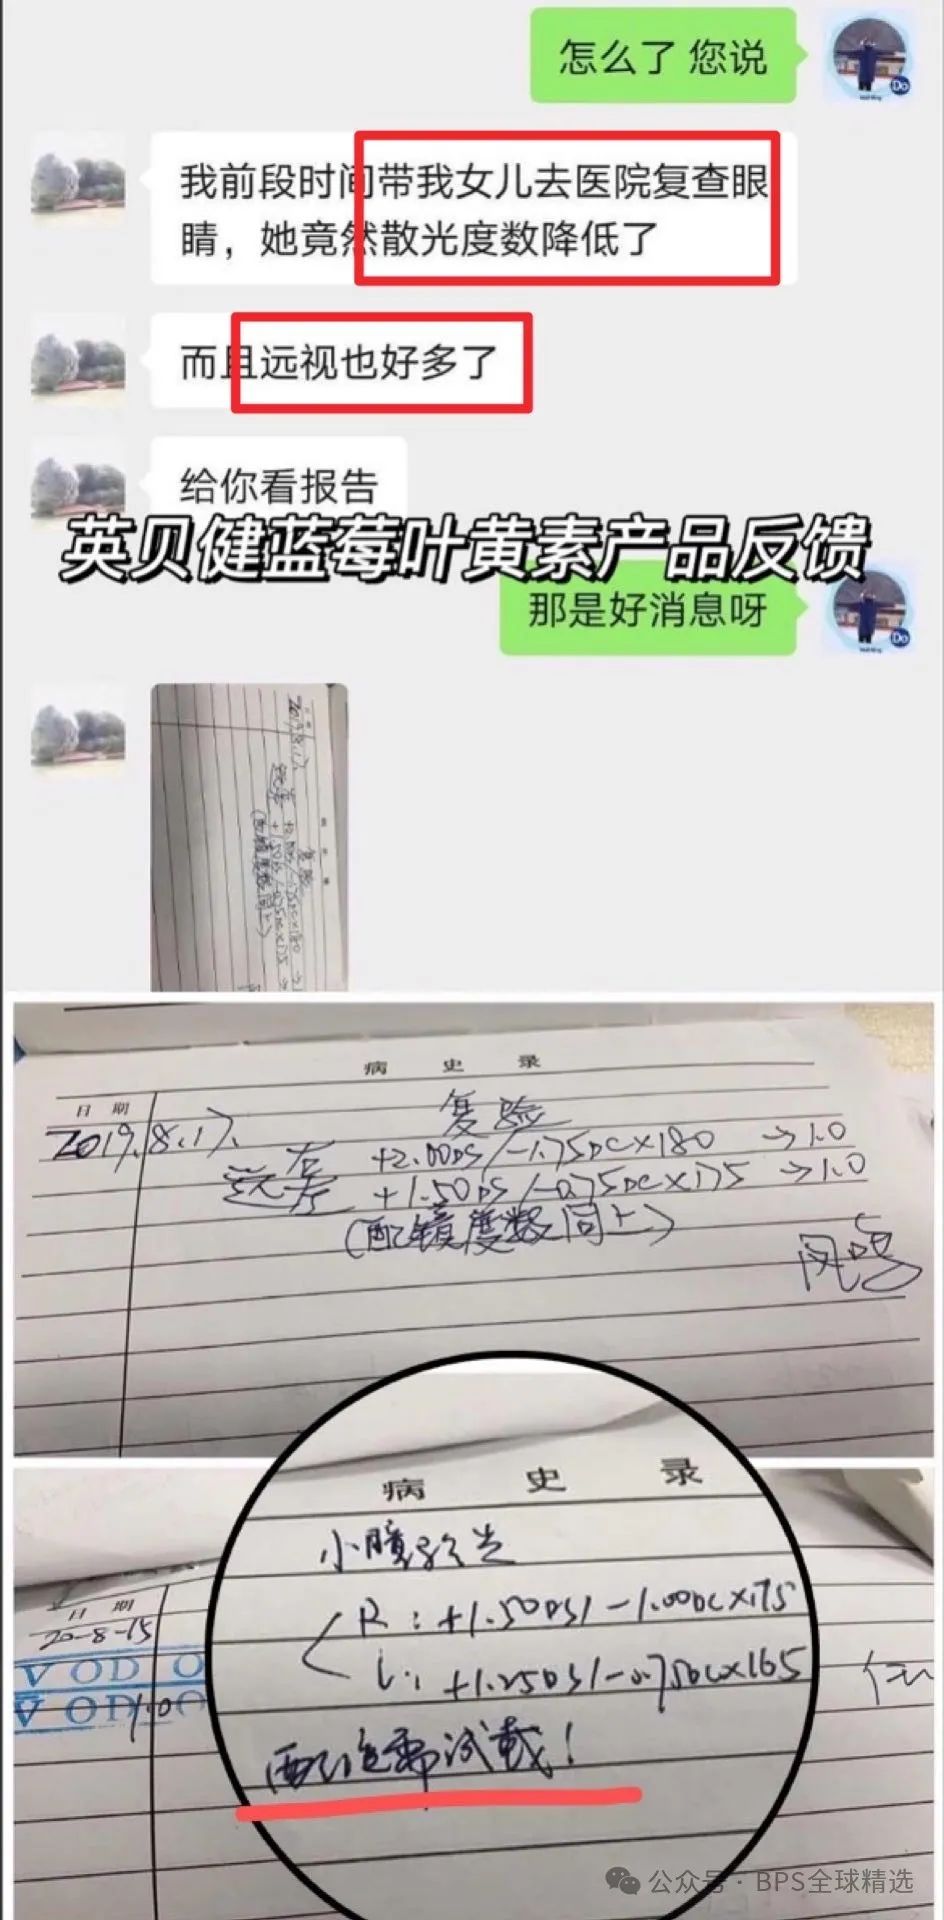 怎么了 您说
我前段时间带我女儿去医院复查眼
睛，她竟然散光度数降低了
而且远视也好多了
给你看报告
英贝健蓝莓叶黄素产品反馈
那是好消息呀
病 史 录
日 期
复验
2019.8.17.
远 右 +2.00DS/-1.75DC×180 →1.0
左 +1.50DS/-0.75DC×175 →1.0
(配镜度数同上)
病 史 录
小瞳验光
R: +1.50DS/-1.00DC×175
L: +1.25DS/-0.75DC×165
试戴!
日 期
20-8-15
VOD
VOD
1.0
公众号 · BPS全球精选